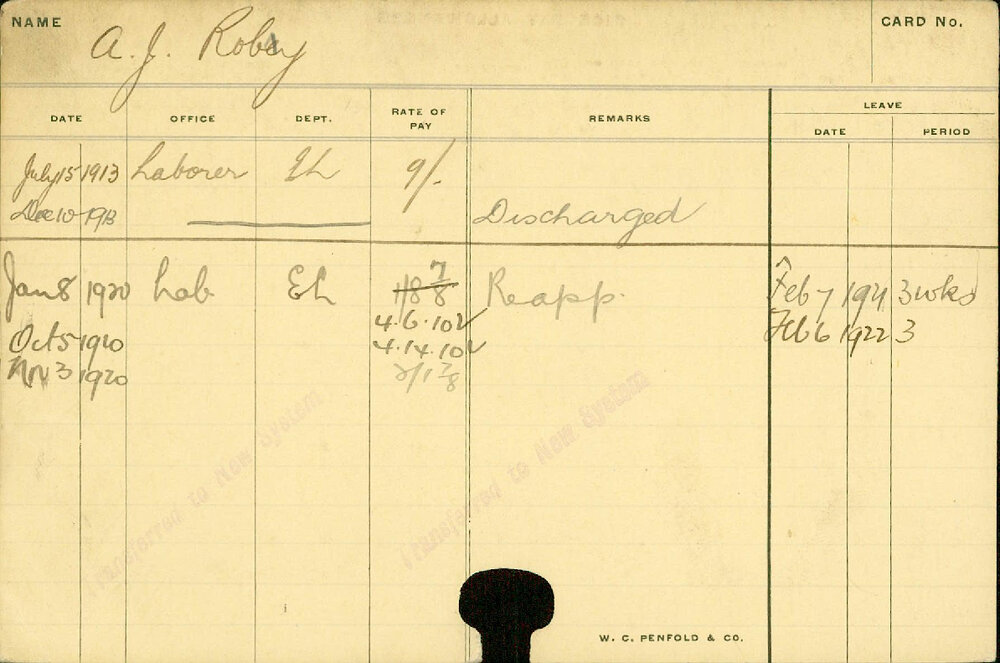 NAME
A. J. Robey
CARD No.
DATE OFFICE DEPT. RATE OF PAY REMARKS LEAVE
DATE PERIOD
July 15 1913 Laborer EL 9/-
Dec 10 1913 Discharged
Jan 8 1920 Lab EL 1/8 7/8 Reapp. Feb 7 1921 3 wks
4.6.10 Feb 6 1922 3
Oct 5 1920 4.14.10
Nov 3 1920 2/1 7/8
Transferred to New System
Transferred to New System
W. C. PENFOLD & CO.